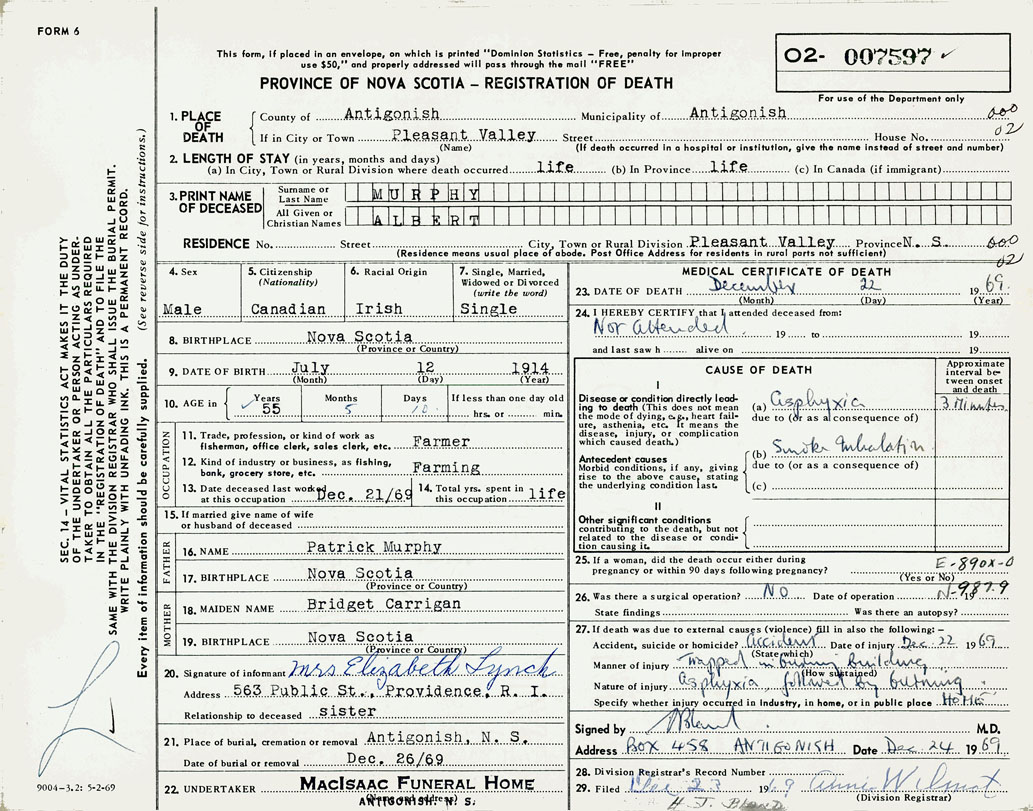 FORM 6
O2- 007597 ✓
For use of the Department only
This form, if placed in an envelope, on which is printed "Dominion Statistics – Free, penalty for improper
use $50," and properly addressed will pass through the mail "FREE"
PROVINCE OF NOVA SCOTIA – REGISTRATION OF DEATH
1. PLACE OF DEATH
County of Antigonish Municipality of Antigonish 000
If in City or Town Pleasant Valley Street House No. 02
(Name) (If death occurred in a hospital or institution, give the name instead of street and number)
2. LENGTH OF STAY (in years, months and days)
(a) In City, Town or Rural Division where death occurred life (b) In Province life (c) In Canada (if immigrant)
3. PRINT NAME OF DECEASED
Surname or Last Name MURPHY
All Given or Christian Names ALBERT
RESIDENCE No. Street City, Town or Rural Division Pleasant Valley Province N. S. 000
(Residence means usual place of abode. Post Office Address for residents in rural parts not sufficient) 02
4. Sex
Male
5. Citizenship
(Nationality)
Canadian
6. Racial Origin
Irish
7. Single, Married,
Widowed or Divorced
(write the word)
Single
8. BIRTHPLACE Nova Scotia
(Province or Country)
9. DATE OF BIRTH July 12 1914
(Month) (Day) (Year)
10. AGE in Years Months Days If less than one day old
55 5 10 hrs. or min.
OCCUPATION
11. Trade, profession, or kind of work as
fisherman, office clerk, sales clerk, etc. Farmer
12. Kind of industry or business, as fishing,
bank, grocery store, etc. Farming
13. Date deceased last worked
at this occupation Dec. 21/69
14. Total yrs. spent in
this occupation life
15. If married give name of wife
or husband of deceased
FATHER
16. NAME Patrick Murphy
17. BIRTHPLACE Nova Scotia
(Province or Country)
MOTHER
18. MAIDEN NAME Bridget Carrigan
19. BIRTHPLACE Nova Scotia
(Province or Country)
20. Signature of informant Mrs Elizabeth Lynch
Address 563 Public St., Providence, R. I.
Relationship to deceased sister
21. Place of burial, cremation or removal Antigonish, N. S.
Date of burial or removal Dec. 26/69
22. UNDERTAKER MACISAAC FUNERAL HOME
(Name and address)
ANTIGONISH N. S.
MEDICAL CERTIFICATE OF DEATH
23. DATE OF DEATH December 22 1969
(Month) (Day) (Year)
24. I HEREBY CERTIFY that I attended deceased from:
Not Attended 19 to 19
and last saw h alive on 19
CAUSE OF DEATH
Approximate
interval be-
tween onset
and death
I
Disease or condition directly lead-
ing to death (This does not
mean the mode of dying, e.g., heart fail-
ure, asthenia, etc. It means the
disease, injury, or complication
which caused death.)
(a) Asphyxia 3 Minutes
due to (or as a consequence of)
Antecedent causes
Morbid conditions, if any, giving
rise to the above cause, stating
the underlying condition last.
(b) Smoke Inhalation
due to (or as a consequence of)
(c)
II
Other significant conditions
contributing to the death, but not
related to the disease or condi-
tion causing it.
25. If a woman, did the death occur either during
pregnancy or within 90 days following pregnancy?
(Yes or No)
E-890X-0
N-987.9
26. Was there a surgical operation? NO Date of operation 19
State findings Was there an autopsy?
27. If death was due to external causes (violence) fill in also the following: –
Accident, suicide or homicide? Accident Date of injury Dec 22 1969
(State which)
Manner of injury Trapped in burning Building
(How sustained)
Nature of injury Asphyxia, followed by burning.
Specify whether injury occurred in Industry, in home, or in public place HOME
Signed by M.D.
Address BOX 458 ANTIGONISH Date Dec 24 1969
28. Division Registrar's Record Number
29. Filed Dec 23 1969
(Division Registrar)
H. J. Bland
SEC. 14 – VITAL STATISTICS ACT MAKES IT THE DUTY
OF THE UNDERTAKER OR PERSON ACTING AS UNDER-
TAKER TO OBTAIN ALL THE PARTICULARS REQUIRED
IN THE "REGISTRATION OF DEATH" AND TO FILE THE
SAME WITH THE DIVISION REGISTRAR WHO SHALL ISSUE THE BURIAL PERMIT.
WRITE PLAINLY WITH UNFADING INK. THIS IS A PERMANENT RECORD.
Every item of information should be carefully supplied. (See reverse side for instructions.)
9004–3.2: 5-2-69